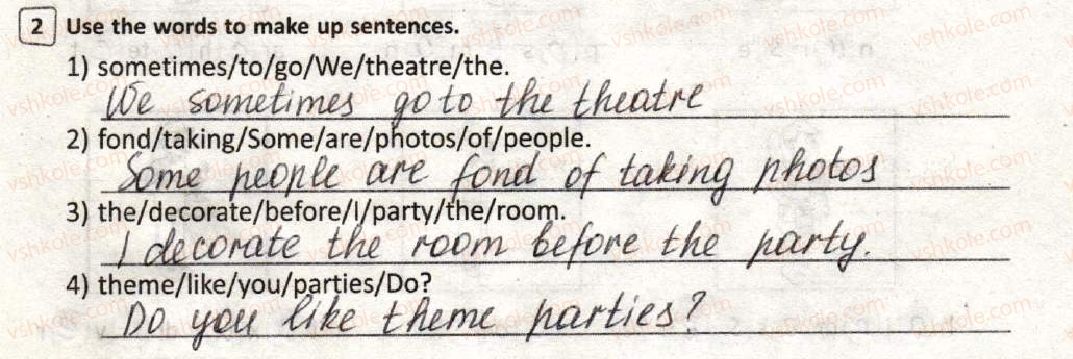 2 Use the words to make up sentences.
1) sometimes/to/go/We/theatre/the.
We sometimes go to the theatre
2) fond/taking/Some/are/photos/of/people.
Some people are fond of taking photos
3) the/decorate/before/I/party/the/room.
I decorate the room before the party.
4) theme/like/you/parties/Do?
Do you like theme parties?